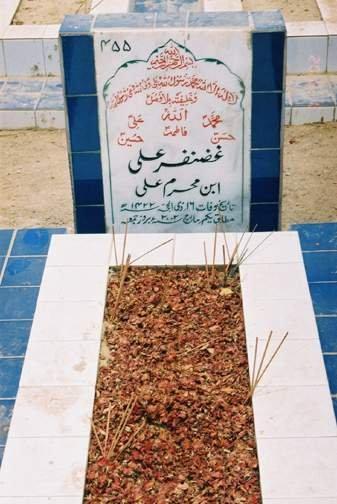 ۴۵۵
بسم اللہ الرحمن الرحیم
لا الہ الا اللہ محمد رسول اللہ علی ولی اللہ وصی رسول اللہ
و خلیفتہ بلا فصل
محمدؐ اللہ علیؑ
حسنؑ فاطمہؑ حسینؑ
غضنفر علی
ابن محرم علی
تاریخ وفات ۱۶ ذی الحج ۱۴۲۲ھ
مطابق یکم مارچ ۲۰۰۲ء بروز جمعہ